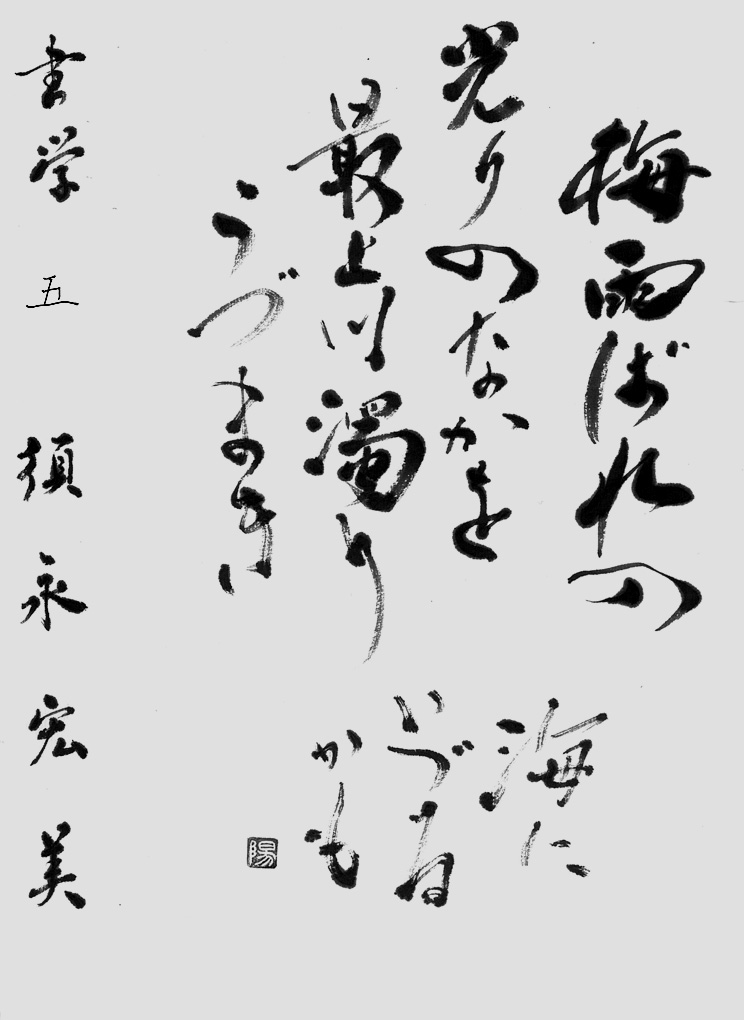 梅雨ばれの
光りのなかを
最上川濁り
うづまき
海に
いづる
かも
陽
書学 五 須永宏美